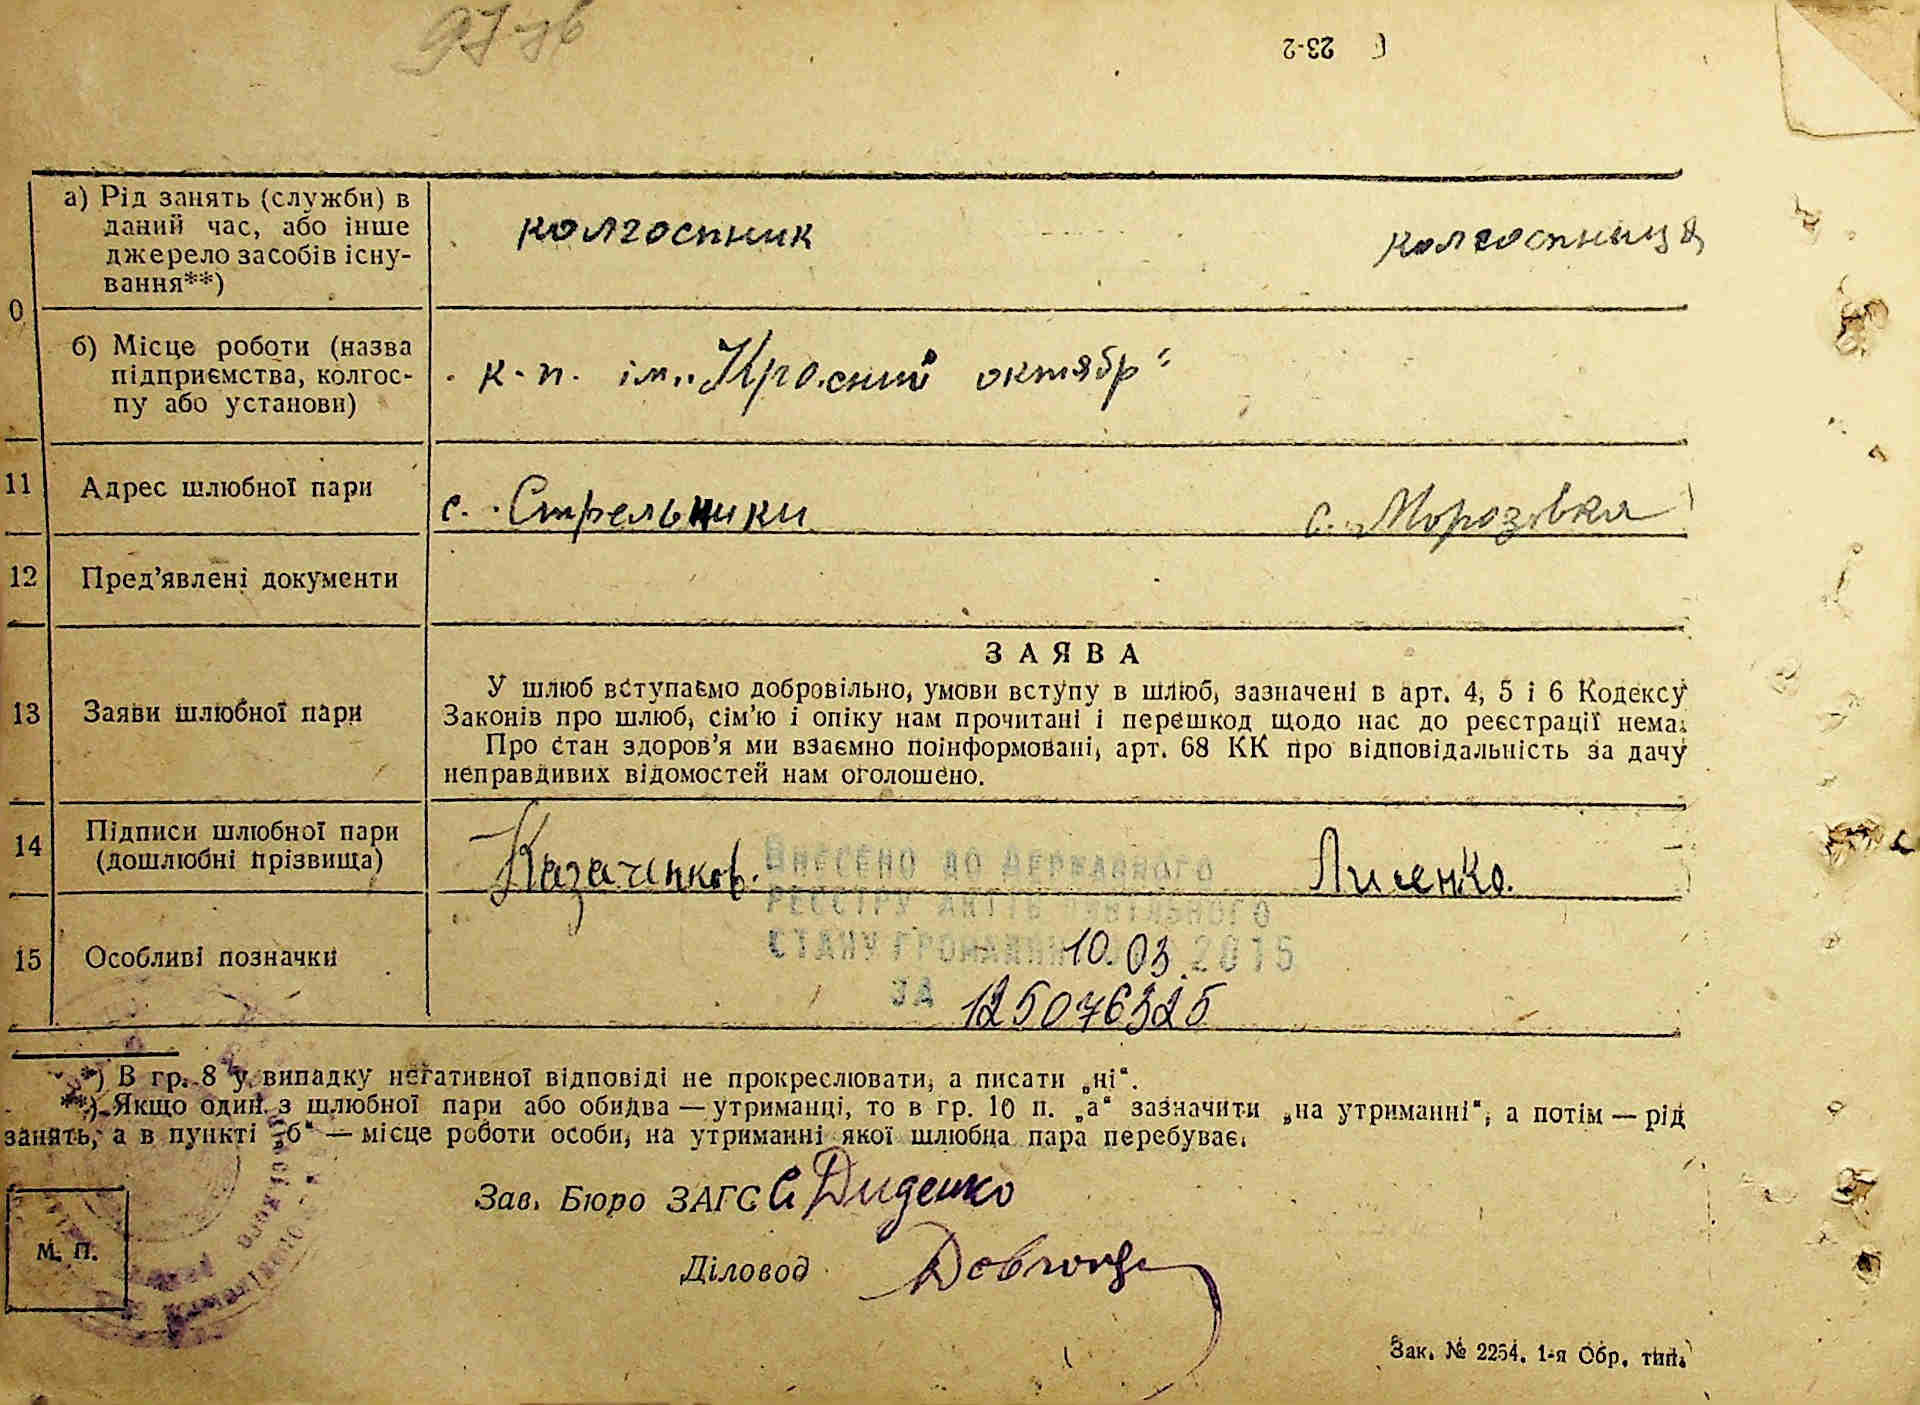 23-2
а) Рід занять (служби) в
даний час, або інше
джерело засобів існу-
вання**)
колгоспник
колгоспниця
0
б) Місце роботи (назва
підприємства, колгос-
пу або установи)
к-п. ім. „Красний октябр"
11
Адрес шлюбної пари
с. Стрельники
с. Морозівка
12
Пред'явлені документи
13
Заяви шлюбної пари
ЗАЯВА
У шлюб вступаємо добровільно, умови вступу в шлюб, зазначені в арт. 4, 5 і 6 Кодексу
Законів про шлюб, сім'ю і опіку нам прочитані і перешкод щодо нас до реєстрації нема.
Про стан здоров'я ми взаємно поінформовані, арт. 68 КК про відповідальність за дачу
неправдивих відомостей нам оголошено.
14
Підписи шлюбної пари
(дошлюбні прізвища)
Казаченков.
Лисенко.
ВНЕСЕНО ДО ДЕРЖАВНОГО
РЕЄСТРУ АКТІВ ЦИВІЛЬНОГО
СТАНУ ГРОМАДЯН 10.03.2015
ЗА 125076325
15
Особливі позначки
*) В гр. 8 у випадку негативної відповіді не прокреслювати, а писати „ні".
**) Якщо один з шлюбної пари або обидва — утриманці, то в гр. 10 п. „а" зазначити „на утриманні", а потім — рід
занять, а в пункті „б" — місце роботи особи, на утриманні якої шлюбна пара перебуває.
Зав. Бюро ЗАГС С Диденко
Діловод
М. П.
Зак. № 2254. 1-я Обр. тип.